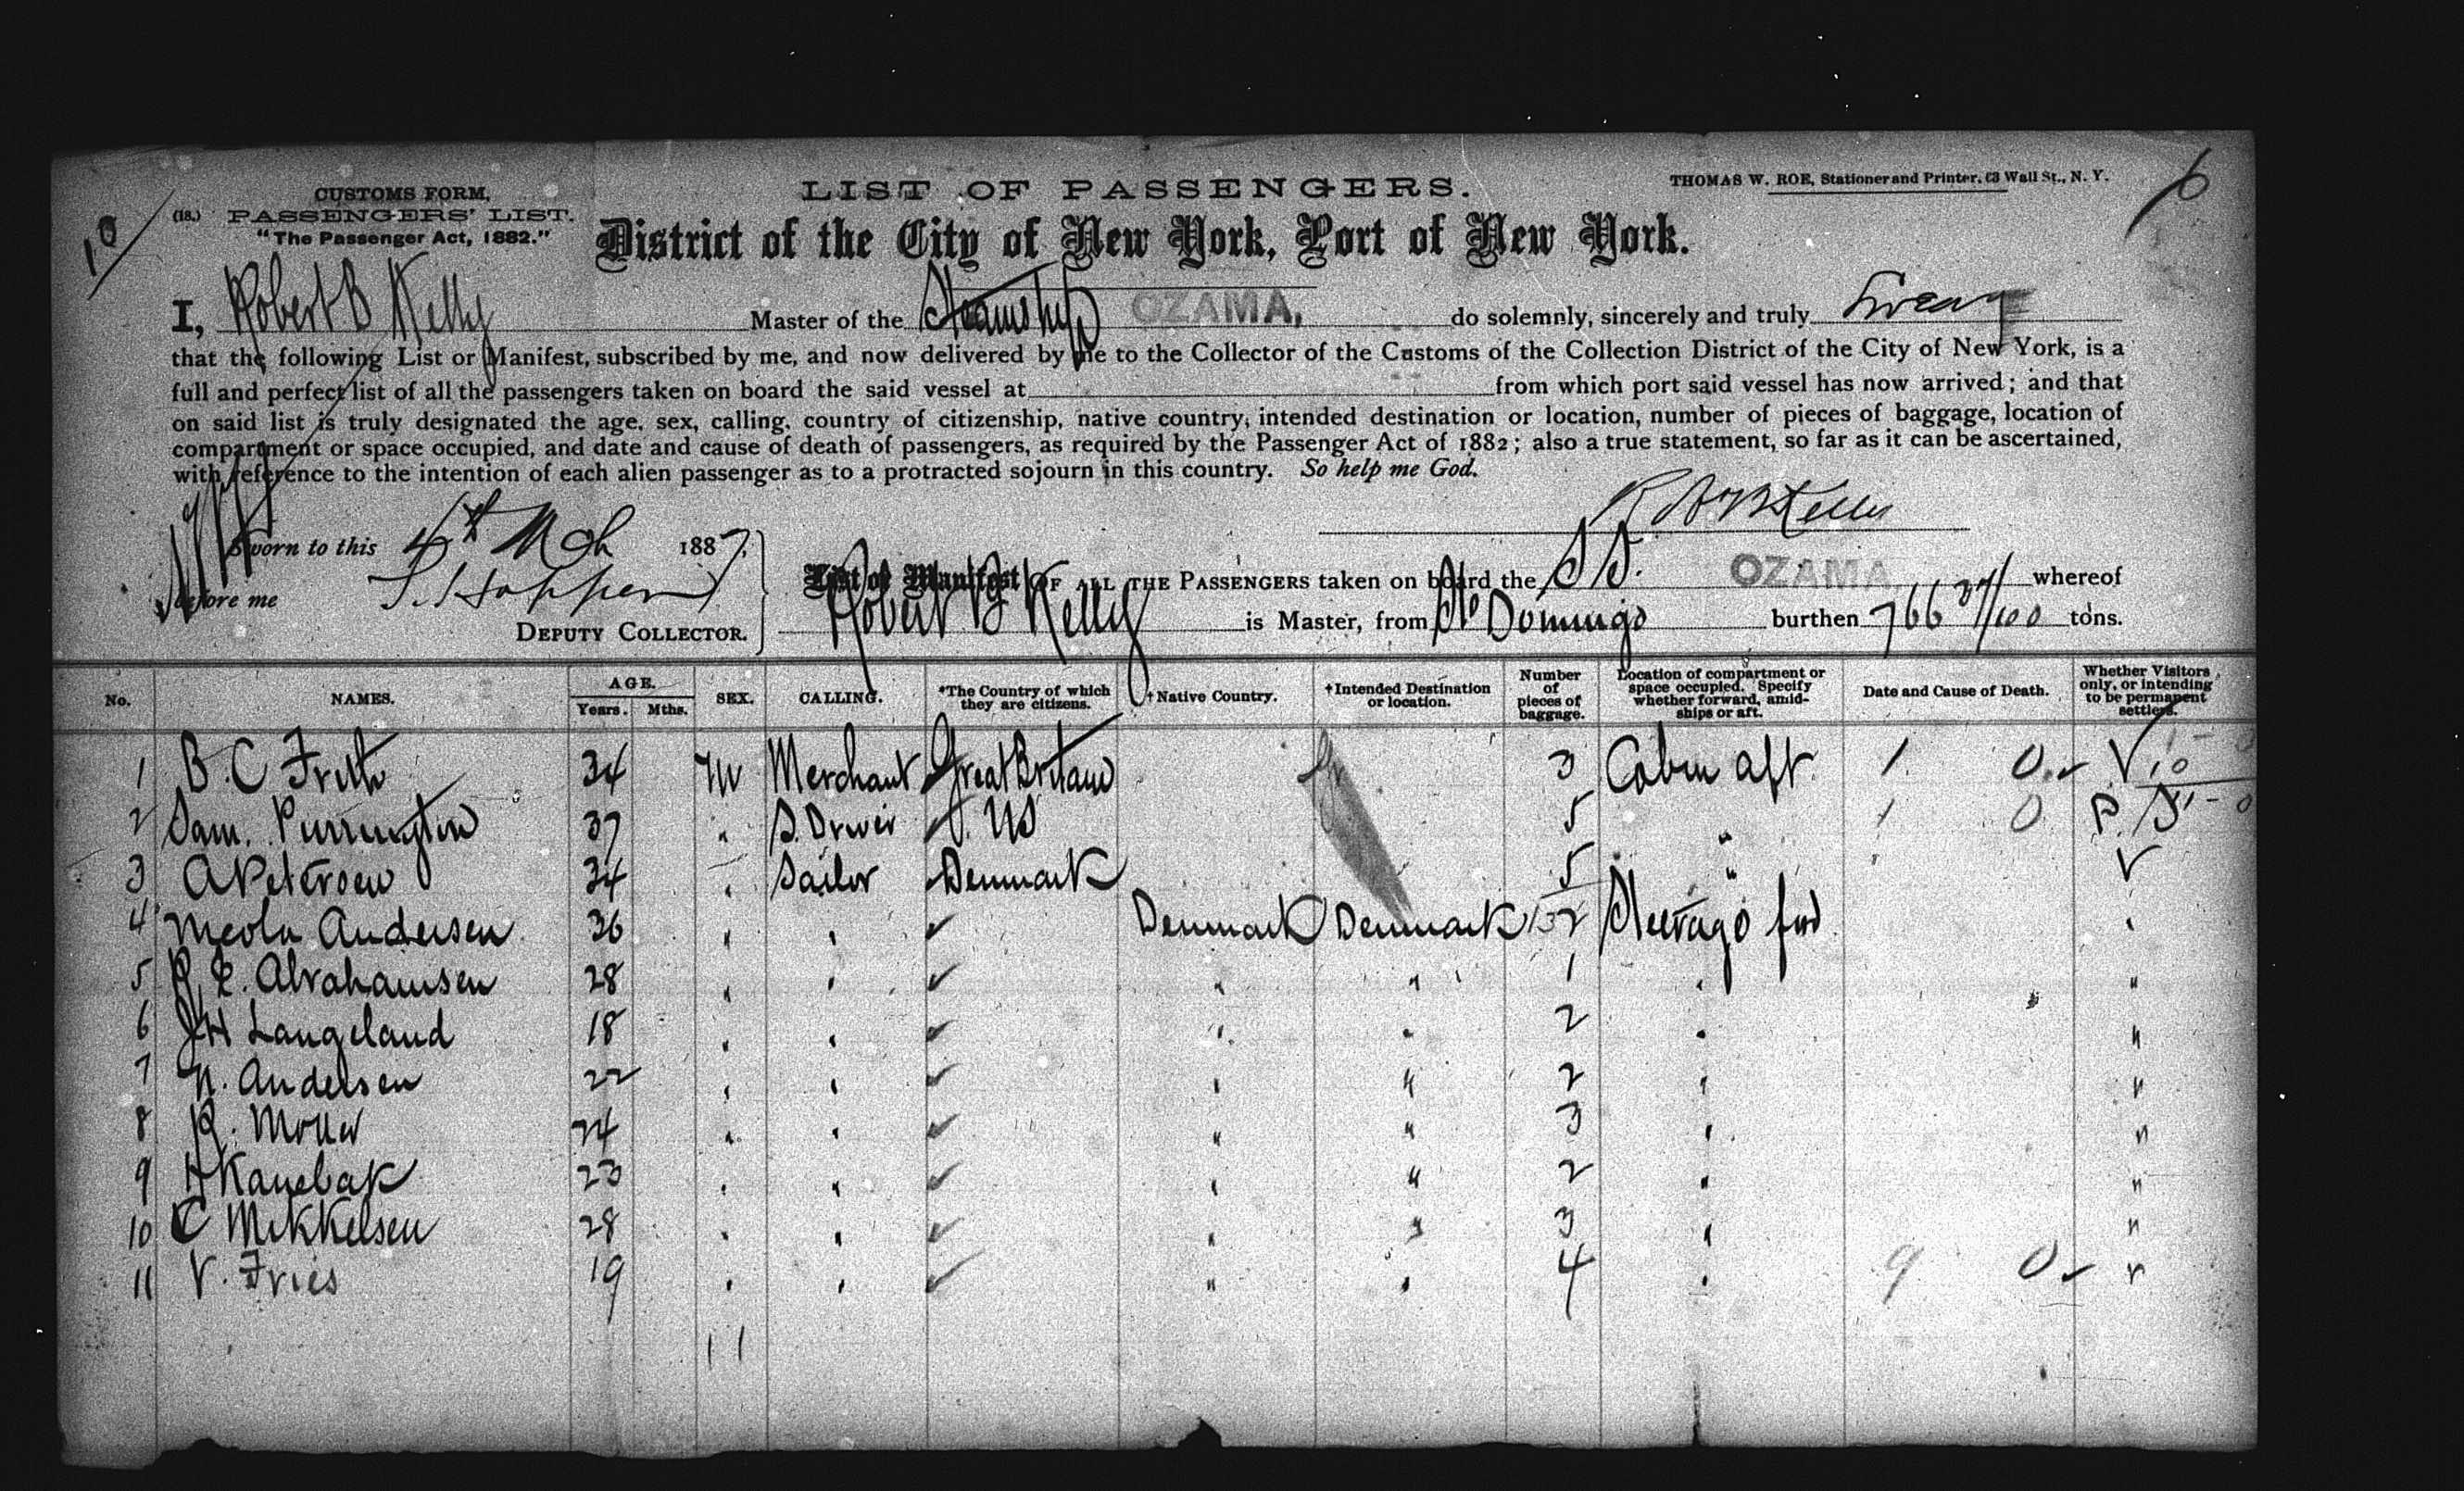 CUSTOMS FORM,
(18.) PASSENGERS' LIST.
"The Passenger Act, 1882."
LIST OF PASSENGERS.
THOMAS W. ROE, Stationer and Printer, 63 Wall St., N. Y.
10
District of the City of New York, Port of New York.
I, Robert B Kelly Master of the Steamship OZAMA, do solemnly, sincerely and truly Swear
that the following List or Manifest, subscribed by me, and now delivered by me to the Collector of the Customs of the Collection District of the City of New York, is a
full and perfect list of all the passengers taken on board the said vessel at from which port said vessel has now arrived; and that
on said list is truly designated the age, sex, calling, country of citizenship, native country, intended destination or location, number of pieces of baggage, location of
compartment or space occupied, and date and cause of death of passengers, as required by the Passenger Act of 1882; also a true statement, so far as it can be ascertained,
with reference to the intention of each alien passenger as to a protracted sojourn in this country. So help me God.
Kelly
Sworn to this 4th Mch 1887,
before me Hopper
DEPUTY COLLECTOR.
List or Manifest OF ALL THE PASSENGERS taken on board the SS. OZAMA whereof
Robert B Kelly is Master, from St Domingo burthen 766 37/100 tons.
No. NAMES. AGE. Years. Mths. SEX. CALLING. *The Country of which they are citizens. †Native Country. †Intended Destination or location. Number of pieces of baggage. Location of compartment or space occupied. Specify whether forward, amidships or aft. Date and Cause of Death. Whether Visitors only, or intending to be permanent settlers.
1 B. C Frith 34 M Merchant Great Britain 3 Cabin aft. 1 0 V
2 Sam. Purrington 37 " S. Driver U.S 5 " 1 0 P.
3 A Petersen 34 " Sailor Denmark 5 " V
4 Andersen 36 " " ✓ Denmark Denmark 2 Steerage fwd "
5 Abrahamsen 28 " " ✓ " " 1 " "
6 JH Langeland 18 " " ✓ " " 2 " "
7 N. Andersen 22 " " ✓ " " 2 " "
8 R. Moller 24 " " ✓ " " 3 " "
9 H Kanebak 23 " " ✓ " " 2 " "
10 C Mikkelsen 28 " " ✓ " " 3 " "
11 V. Fries 19 " " ✓ " " 4 " 9 0 "
11